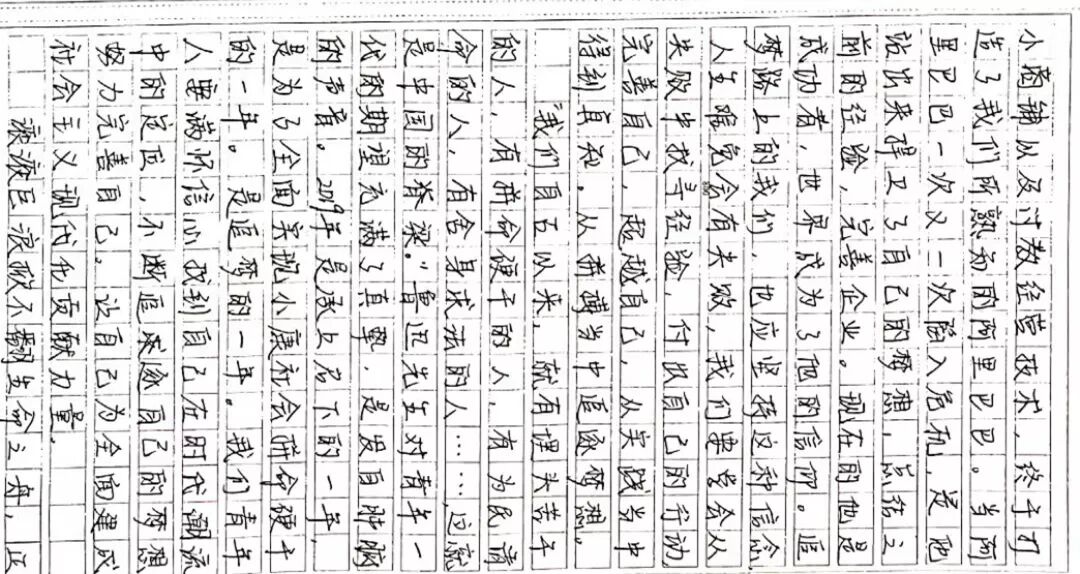 小商铺以及讨教经营技术，终于打
造了我们所熟知的阿里巴巴。当阿
里巴巴一次又一次陷入危机，是他
站出来捍卫了自己的梦想，总结之
前的经验，完善企业。现在的他是
成功者，世界成为了他的信仰。追
梦路上的我们，也应坚持这种信念
人生难免会有失败，我们要学会从
失败中找寻经验，付诸自己的行动
完善自己，超越自己，从实践当中
得到真知，从拼搏当中追逐梦想。
“我们自古以来，就有埋头苦干
的人，有拼命硬干的人，有为民请
命的人，有舍身求法的人……这就
是中国的脊梁。”鲁迅先生对青年一
代的期望充满了真挚，是发自肺腑
的声音。2019年是承上启下的一年，
是为了全面实现小康社会拼命硬干
的一年。是追梦的一年。我们青年
人要满怀信心找到自己在时代潮流
中的定位，不断追逐自己的梦想
努力完善自己。让自己为全面建成
社会主义现代化贡献力量。
巨浪掀不翻生命之舟，